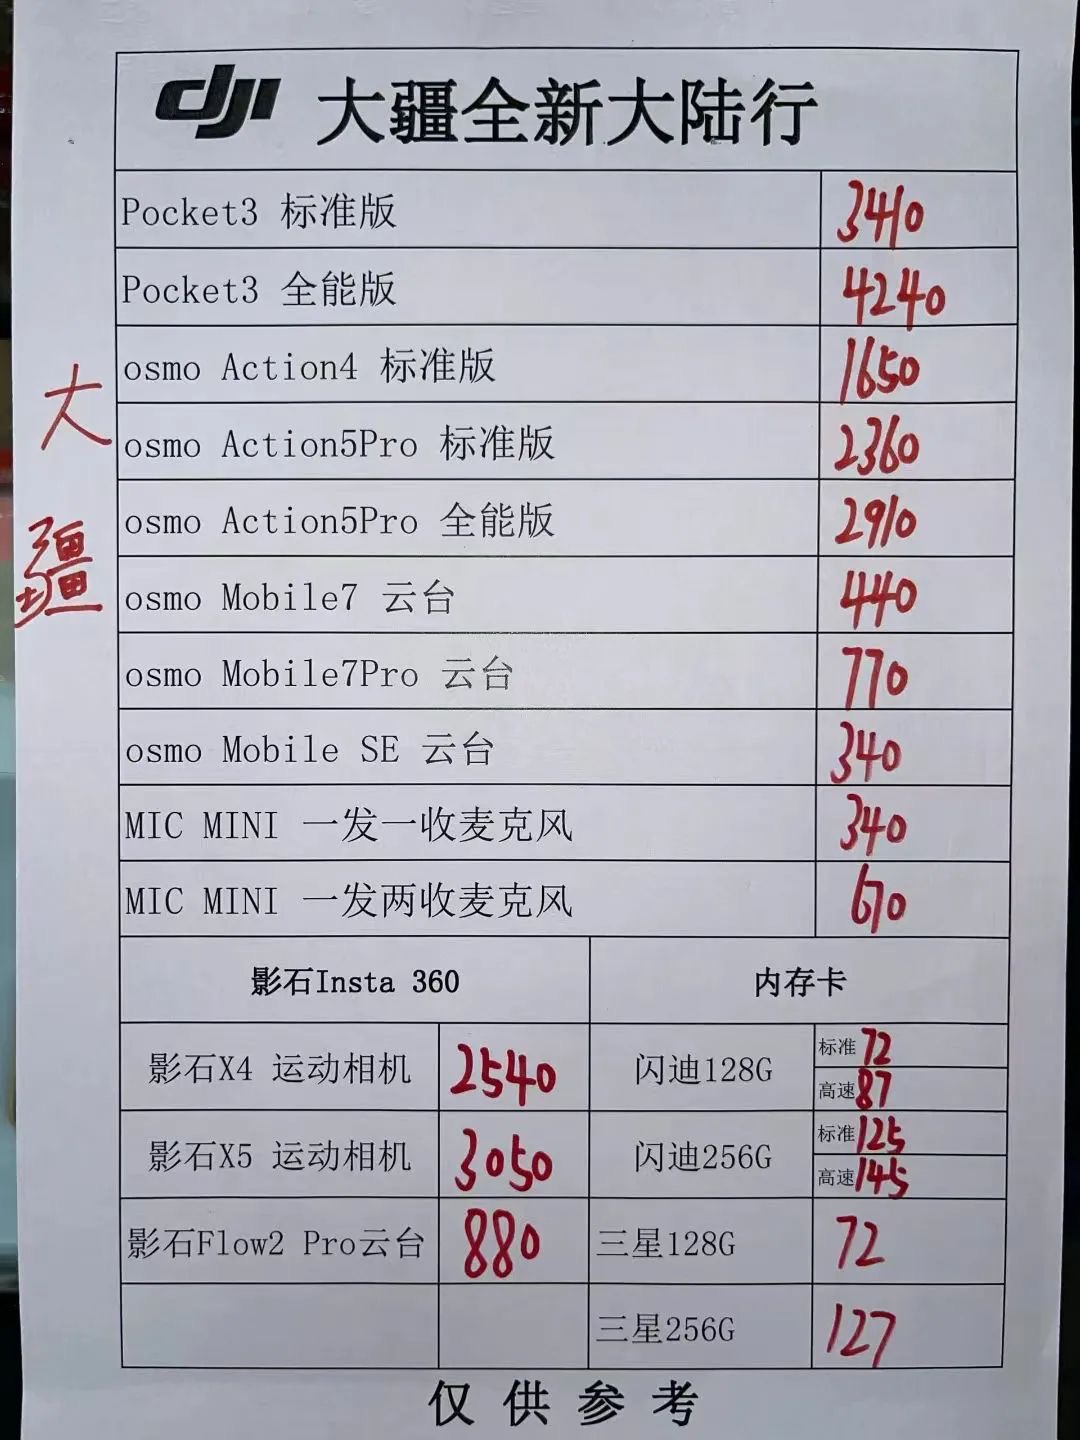 dji 大疆全新大陆行
Pocket3 标准版 3410
Pocket3 全能版 4240
osmo Action4 标准版 1650
osmo Action5Pro 标准版 2360
osmo Action5Pro 全能版 2910
osmo Mobile7 云台 440
osmo Mobile7Pro 云台 770
osmo Mobile SE 云台 340
MIC MINI 一发一收麦克风 340
MIC MINI 一发两收麦克风 670
大疆
影石Insta 360 内存卡
影石X4 运动相机 2540 闪迪128G 标准 72
高速 87
影石X5 运动相机 3050 闪迪256G 标准 125
高速 145
影石Flow2 Pro云台 880 三星128G 72
三星256G 127
仅供参考